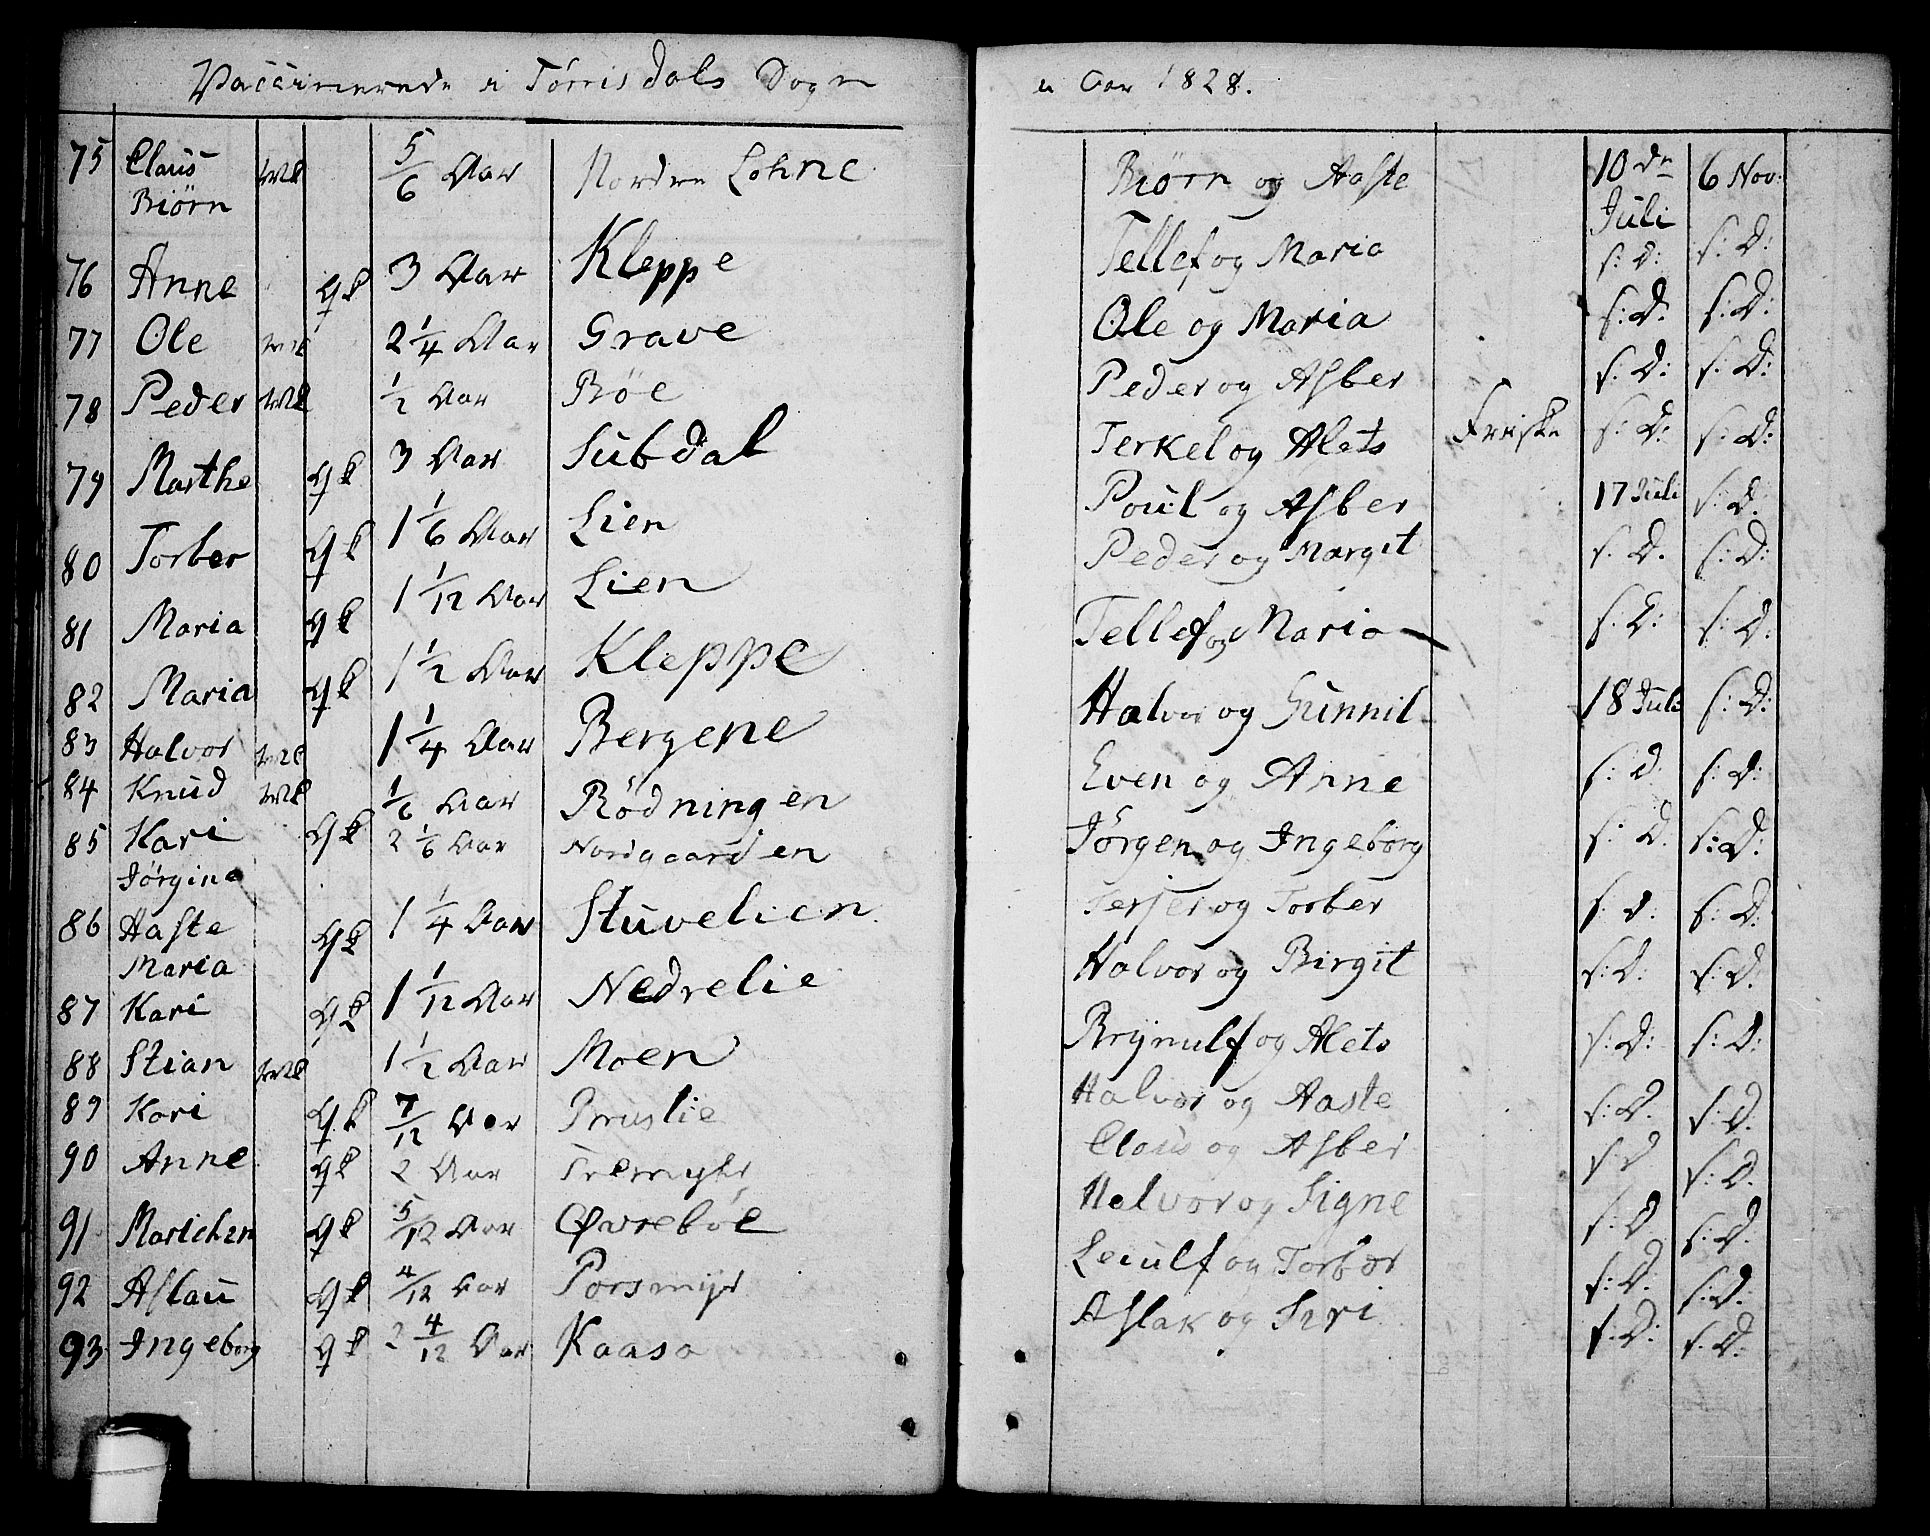 Vaccinerede i Tørrisdals Sogn i Aar 1828.
75 Claus Biørn Mk 5/6 Aar Nordre Lohne Biørn og Aaste 10de Juli 6 Nov:
76 Anne Qk 3 Aar Kleppe Tellef og Maria s: D: s: D:
77 Ole Mk 2 1/4 Aar Grave Ole og Maria s: D: s: D:
78 Peder Mk 1/2 Aar Bøe Peder og Asber s: D: s: D:
79 Marthe Qk 3 Aar Subdal Terkel og Alets Friske s: D: s: D:
80 Torber Qk 1 1/6 Aar Lien Poul og Asber 17 Juli s: D:
81 Maria Qk 1 1/12 Aar Lien Peder og Margit s: D. s: D:
82 Maria Qk 1 1/2 Aar Kleppe Tellef og Maria s: D: s: D:
83 Halvor Mk 1 1/4 Aar Bergene Halvor og Gunnil 18 Juli s: D:
84 Knud Mk 1/6 Aar Rødningen Even og Anne s: D. s: D:
85 Kari Jørgine Qk 2 1/6 Aar Nordgaarden Jørgen og Ingeborg s: D. s: D:
86 Aaste Maria Qk 1 1/4 Aar Stuvelien Terjer og Torber s: D: s: D:
87 Kari Qk 1 1/12 Aar Nedrelie Halvor og Birgit s: D: s: D:
88 Stian Mk 1 1/2 Aar Moen Brynulf og Alets s: D: s: D:
89 Kari Qk 7/12 Aar Pruslie Halvor og Aaste s: D. s: D.
90 Anne Qk 2 Aar Claus og Asber s: D s: D.
91 Marichen Qk 5/12 Aar Øvrebøe Halvor og Signe s: D s: D.
92 Aslau Qk 4/12 Aar Porsmyr Leiulf og Torbor s: D: s: D:
93 Ingeborg Qk 2 4/12 Aar Kaasa Aslak og Siri s: D: s: D: